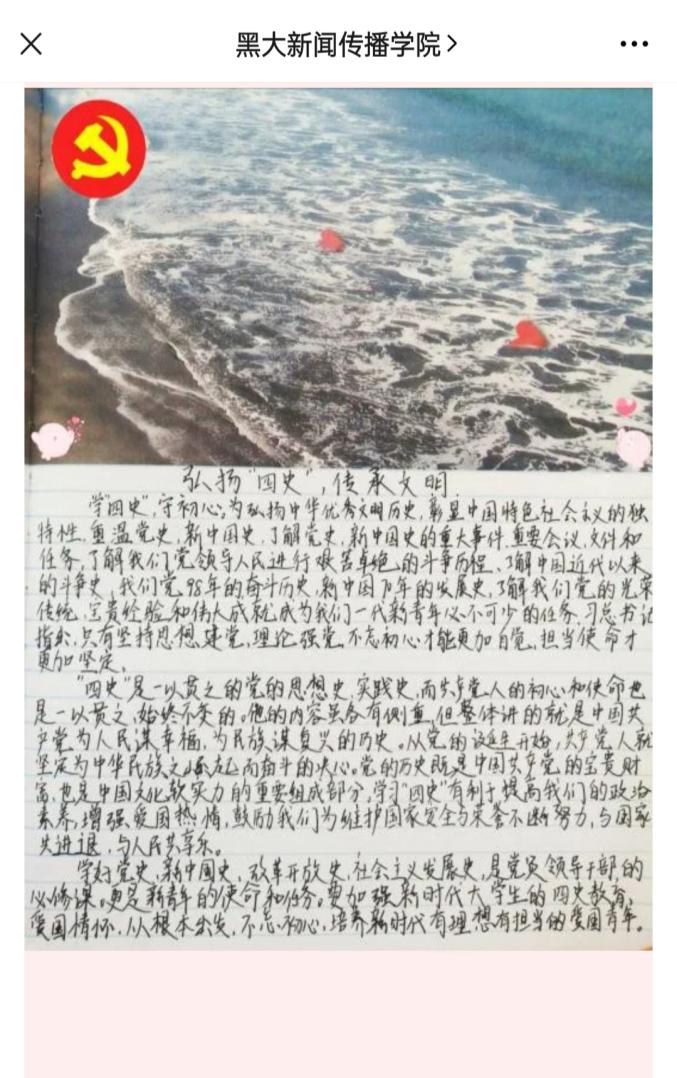 黑大新闻传播学院
弘扬"四史"，传承文明
学"四史"，守初心，为弘扬中华优秀文明历史，彰显中国特色社会主义的独
特性，重温党史，新中国史，了解党史，新中国史的重大事件，重要会议，文件和
任务，了解我们党领导人民进行艰苦卓绝的斗争历程，了解中国近代以来
的斗争史，我们党98年的奋斗历史，新中国70年的发展史，了解我们党的光荣
传统，宝贵经验和伟大成就成为我们一代新青年必不可少的任务，习总书记
指出，只有坚持思想建党，理论强党，不忘初心才能更加自觉，担当使命才
更加坚定。
"四史"是一以贯之的党的思想史，实践史，而共产党人的初心和使命也
是一以贯之，始终不变的。他的内容虽各有侧重，但整体讲的就是中国共
产党为人民谋幸福，为民族谋复兴的历史。从党的诞生开始，共产党人就
坚定为中华民族之崛起而奋斗的决心。党的历史既是中国共产党的宝贵财
富，也是中国文化软实力的重要组成部分，学习"四史"有利于提高我们的政治
素养，增强爱国热情，鼓励我们为维护国家安全与荣誉不断努力，与国家
共进退，与人民共享乐。
学好党史，新中国史，改革开放史，社会主义发展史，是党员领导干部的
必修课。更是新青年的使命和任务。要加强新时代大学生的四史教育，
爱国情怀，从根本出发，不忘初心，培养新时代有理想有担当的爱国青年。